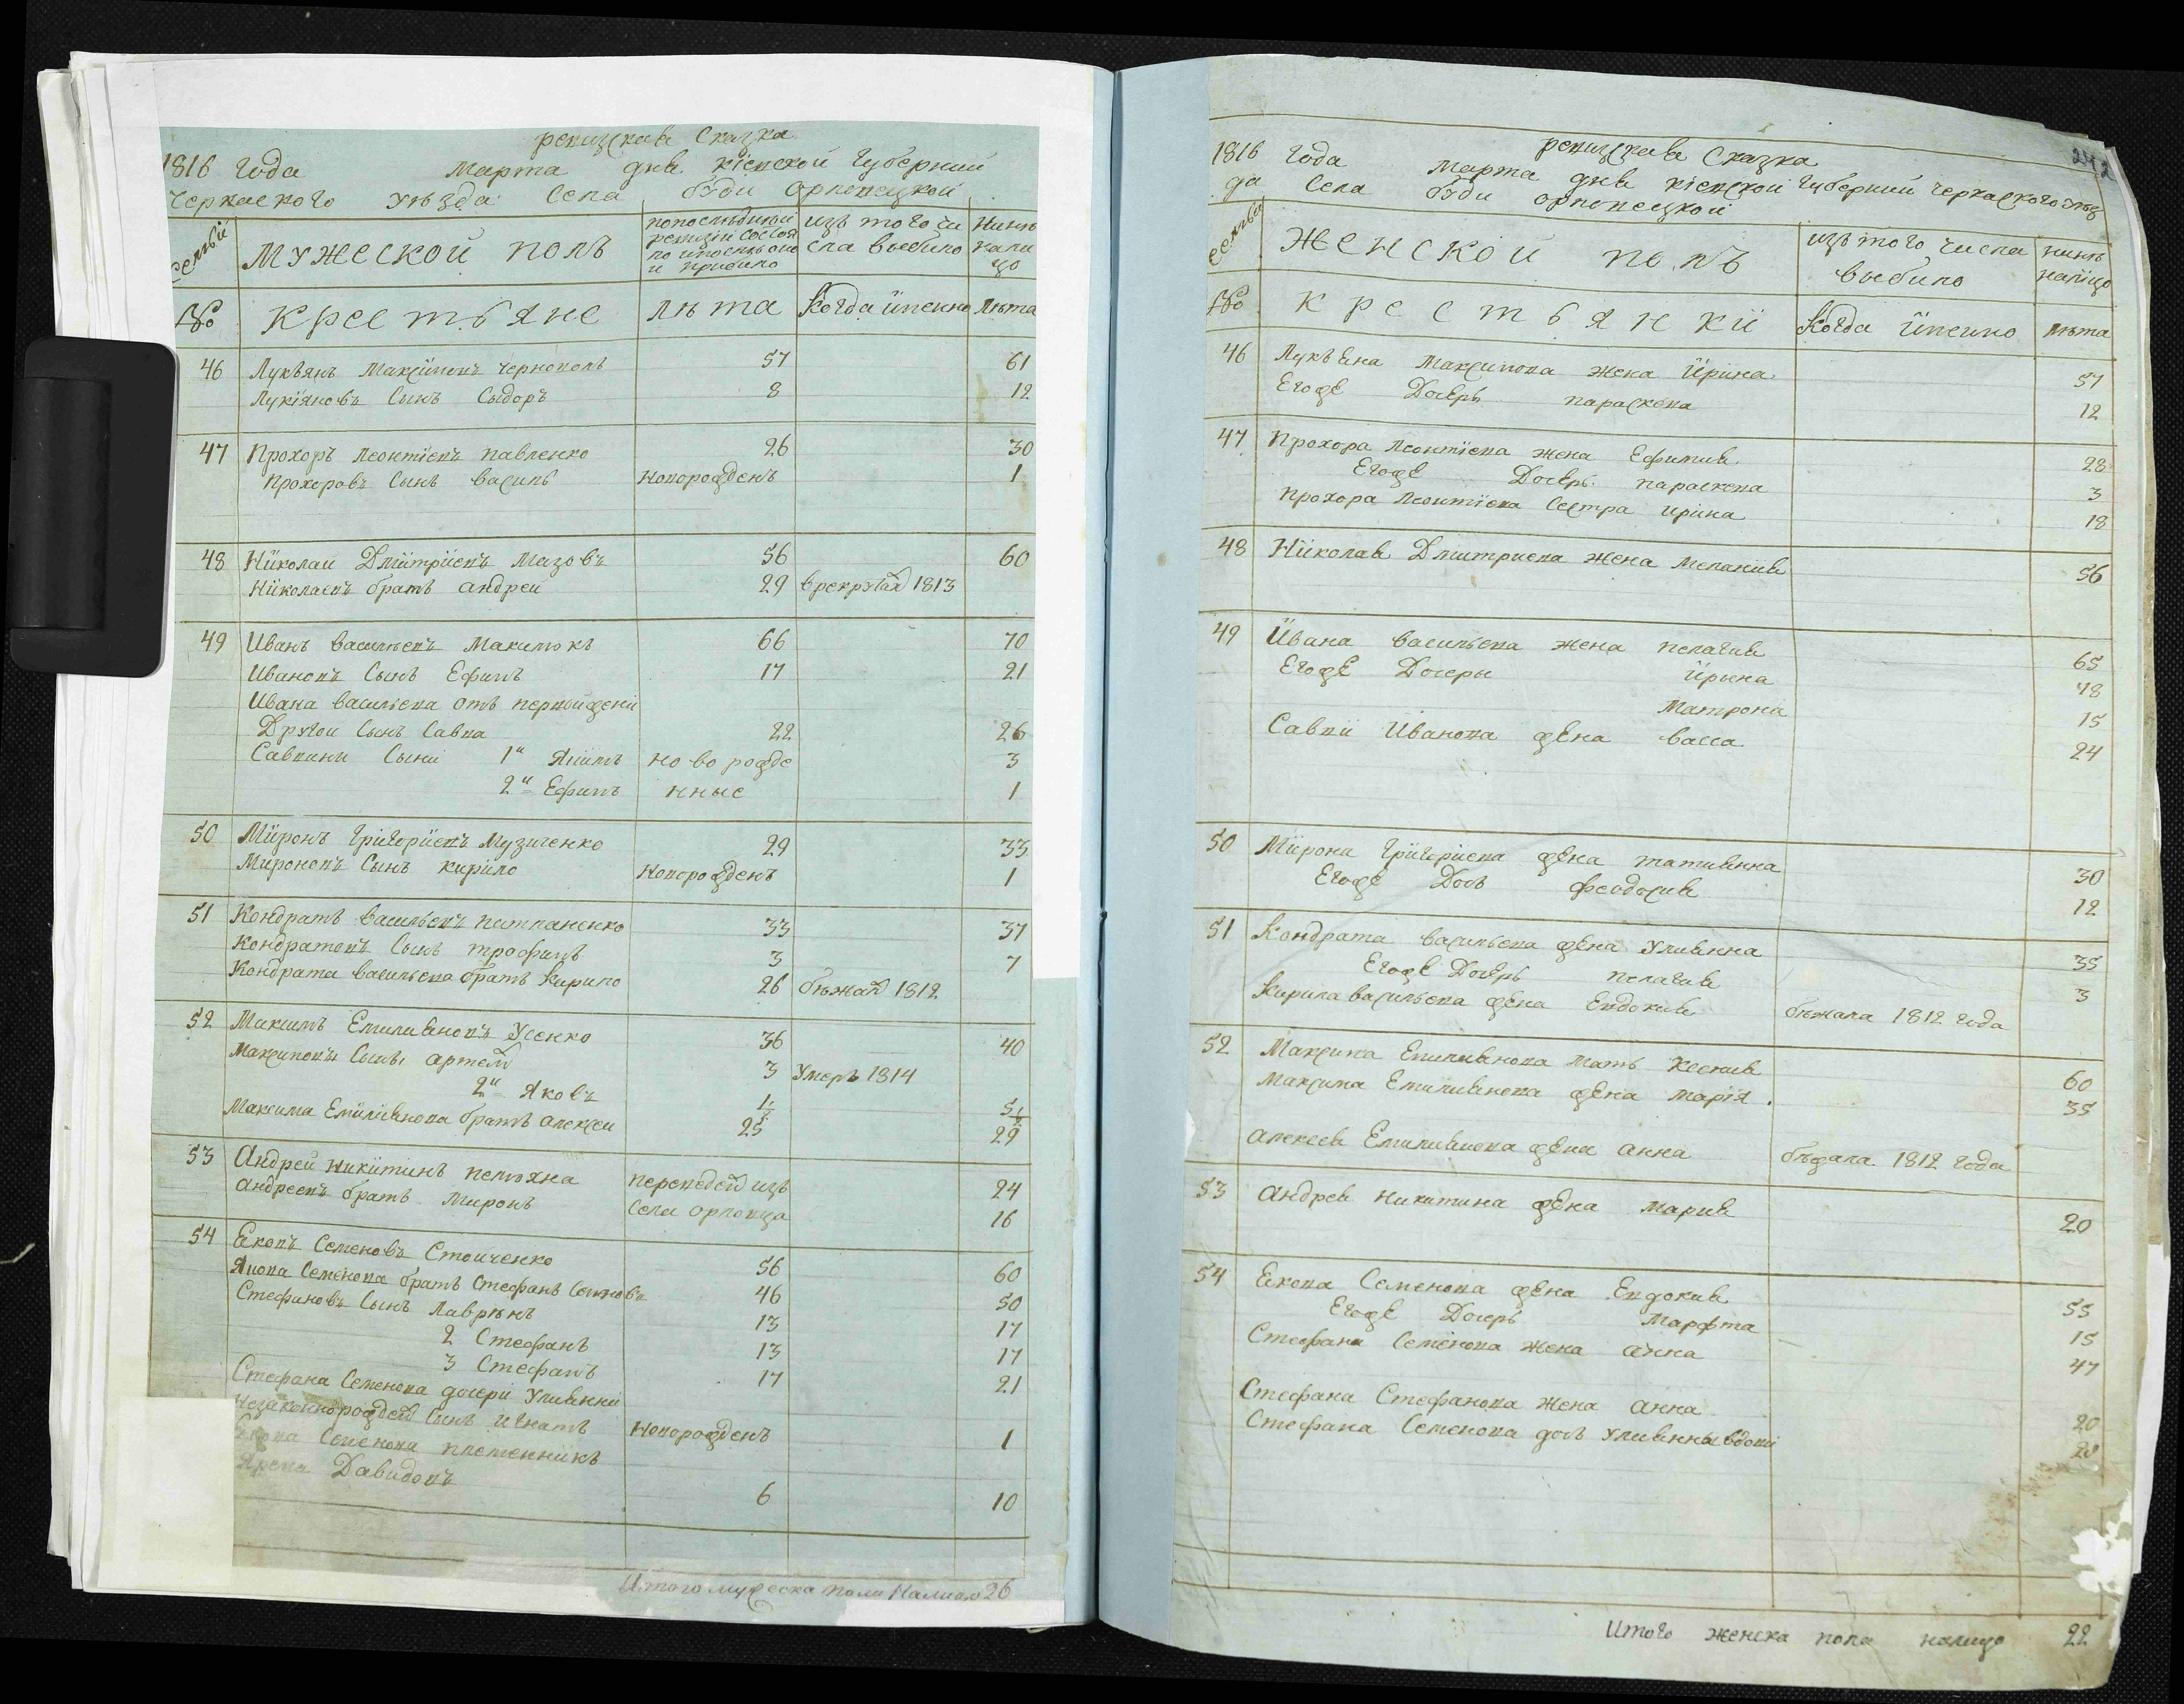 ревизская Сказка
1816 года марта дня кіевской губерній
черкаского уезда села буди орловецкой
семьи
мужеской полъ
по последней ревизіи состояло и после оной прибыло
изъ того числа выбыло
Ныне налицо
№ крестьяне лѣта Когда именно лѣта
46 Лукъянъ Максимовъ Чернополъ 57 61
Лукіяновъ Сынъ Сыдоръ 8 12
47 Прохоръ Леонтіевъ Павленко 26 30
Прохоровъ Сынъ Василь Новорожденъ 1
48 Николай Дмитріевъ Мазовъ 56 60
Николаевъ братъ андрей 29 в рекрутах 1813
49 Иванъ васильевъ Макитокъ 66 70
Ивановъ Сынъ Ефимъ 17 21
Ивана васильева отъ первой жени
Другой Сынъ Савва 22 26
Саввини Сыни 1й новорожде 3
2й Ефимъ нные 1
50 Миронъ григоріевъ Музиченко 29 33
Мироновъ Сынъ кирило Новорожденъ 1
51 Кондратъ васильевъ 33 37
Кондратовъ Сынъ трофимъ 3 7
Кондрата васильева братъ Кирило 26 бежал 1812
52 Максимъ Емилиановъ Усенко 36 40
Максимовы Сыны артем 3 умеръ 1814
2й Яковъ 1½ 5½
Максима Емилианова братъ алексей 25 29
53 Андрей никитинъ переведен изъ 24
андреевъ братъ Миронъ села орловца 16
54 Яковъ Семеновъ Стоиченко 56 60
Якова Семенова братъ Стефанъ Семеновъ 46 50
Стефановъ Сынъ Лаврѣнъ 13 17
2 Стефанъ 13 17
3 Стефанъ 17 21
Стефана Семенова дочери Улиянни
незаконнорожден Сынъ игнатъ Новорожденъ 1
Якова Семенова племенникъ
Давидовъ 6 10
Итого мужеска пола Налицо 26
242
ревизская Сказка
1816 года марта дня кіевской губерній черкаского уез
да Села буди орловецкой
семьи
женской полъ
изъ того числа выбило
ныне налицо
№ крестьянки Когда именно лѣта
46 Лукъяна Максимова жена Ирина 57
Егоже Дочерь параскева 12
47 Прохора Леонтіева жена Ефимия 28
Егоже Дочерь параскева 3
Прохора Леонтіева Сестра ирина 18
48 Николая Дмитриева жена мелания 56
49 Ивана васильева жена пелагия 65
Егоже Дочеры Ирына 18
Матрона 15
Саввы Иванова жена васса 24
50 Мирона григориева жена татиянна 30
Егоже Дочь феодосия 12
51 Кондрата васильева жена Улиянна 35
Егоже Дочерь пелагия 3
Кирила васильева жена Евдокия бежала 1812 года
52 Максима Емилианова мать Ксения 60
Максима Емилианова жена Марія 35
алексея Емилианова жена анна бежала 1812 года
53 андрея никитина жена Мария 20
54 Якова Семенова жена Евдокия 55
Егоже Дочерь Марфта 15
Стефана Семенова жена анна 47
Стефана Стефанова жена анна 20
Стефана Семенова дочь Улиянна вдова 28
Итого женска пола налицо 22